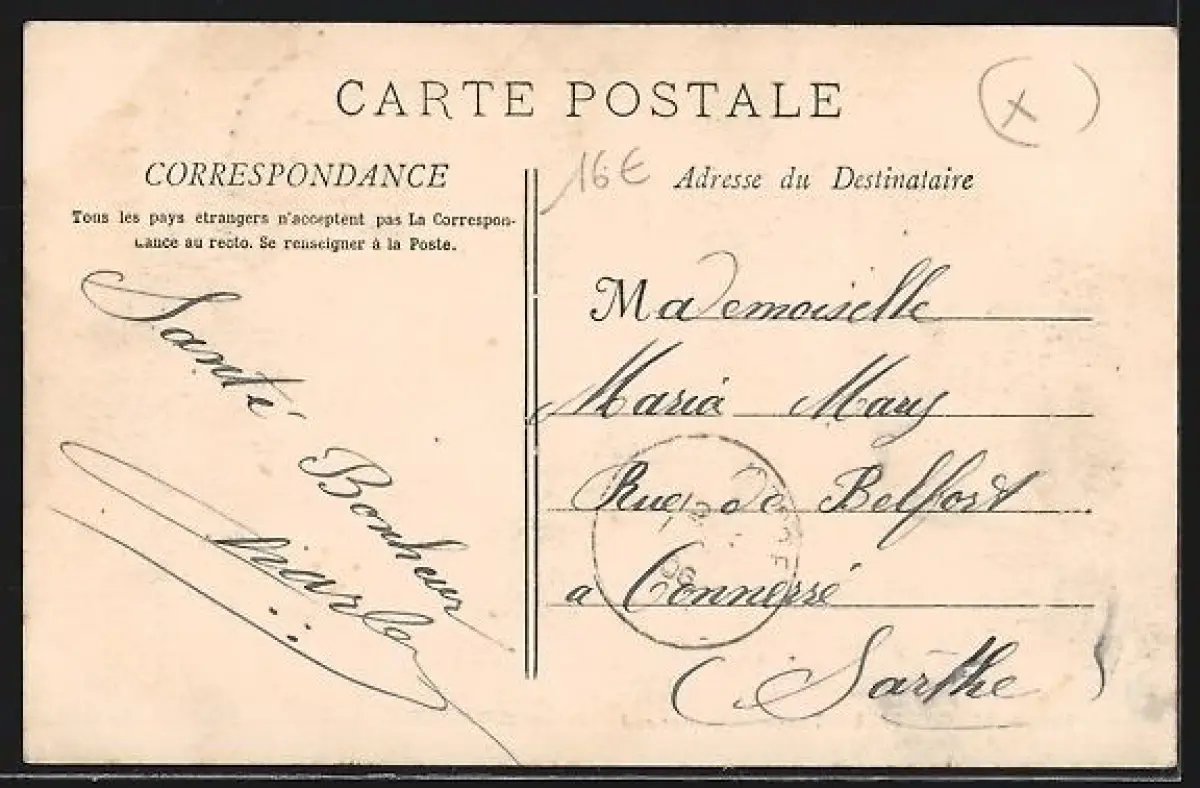 CARTE POSTALE
16€
CORRESPONDANCE
Tous les pays étrangers n'acceptent pas La Correspon-
dance au recto. Se renseigner à la Poste.
Santé Bonheur
Adresse du Destinataire
Mademoiselle
Maria Mary
Rue de Belfort
a Connerré
(Sarthe)